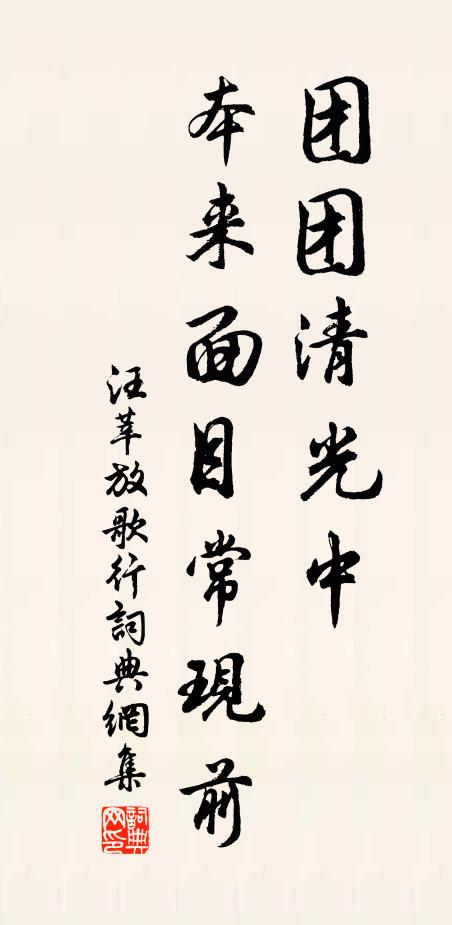 团团清光中
本来面目常現前
汪莘放歌行詞典網集
詞典網印